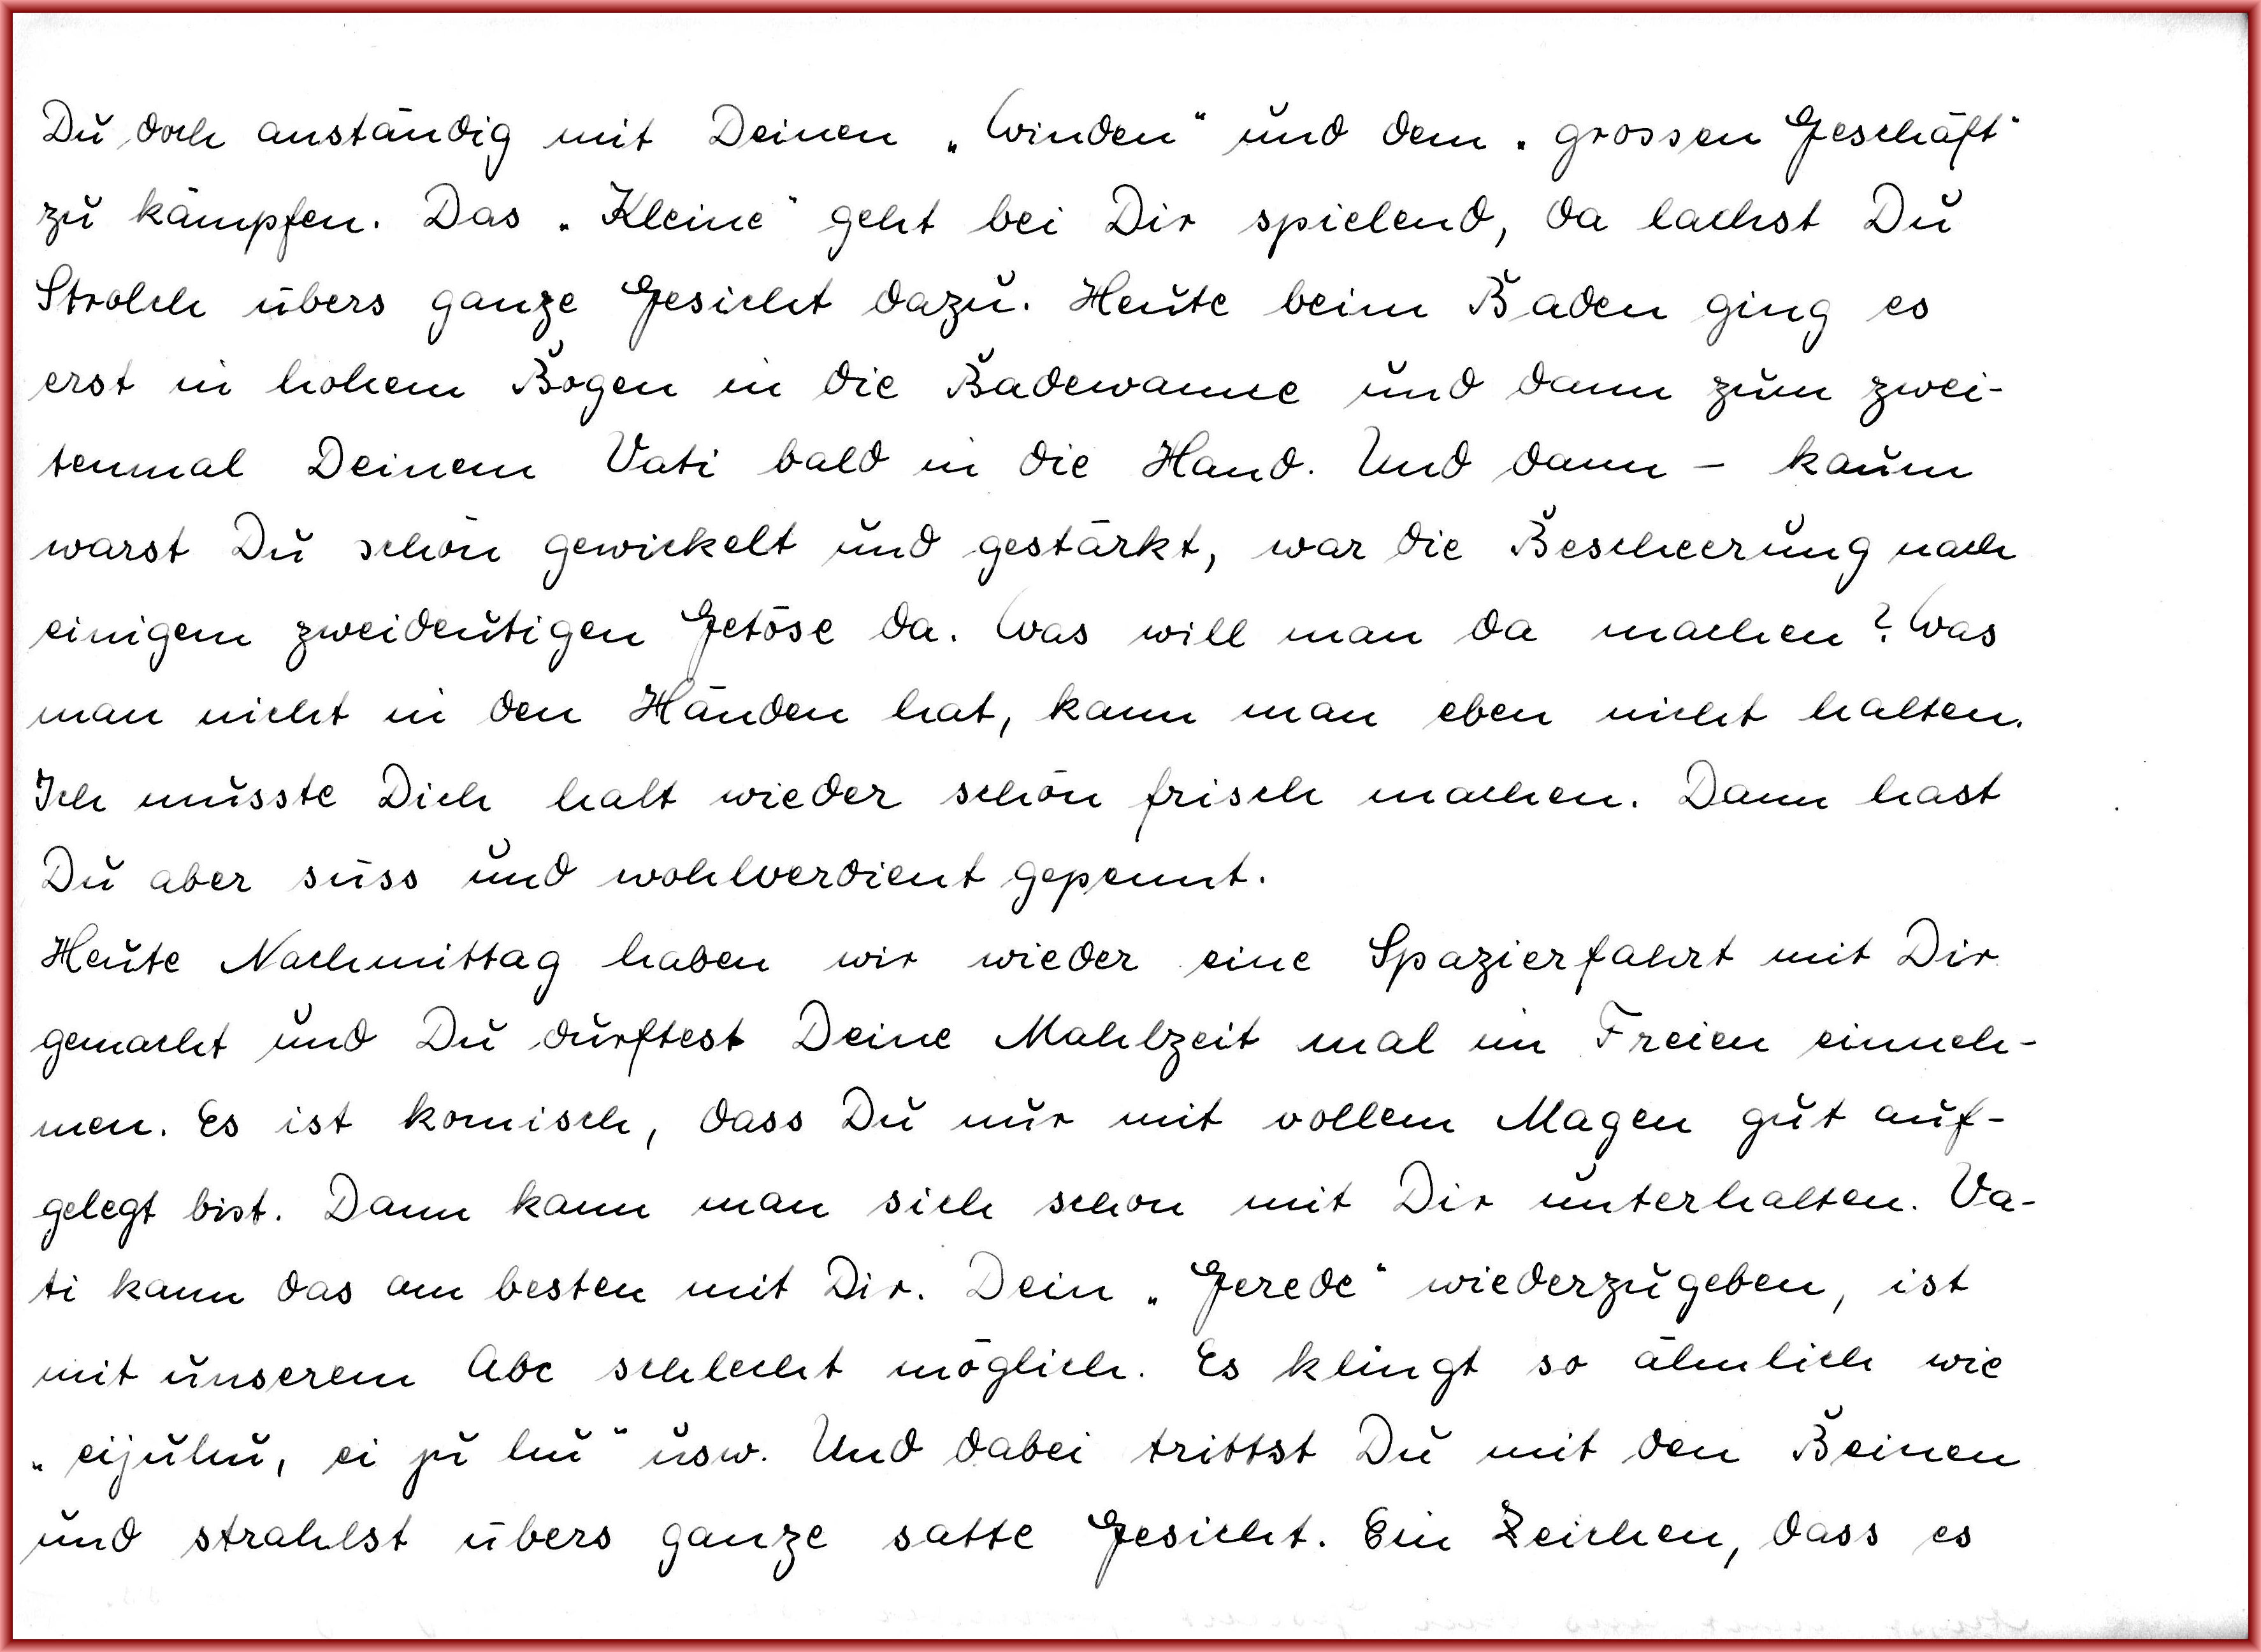 Du doch anständig mit Deinen „Winden“ und dem „grossen Geschäft“
zu kämpfen. Das „Kleine“ geht bei Dir spielend, da lachst Du
Strolch übers ganze Gesicht dazu. Heute beim Baden ging es
erst in hohem Bogen in die Badewanne und dann zum zwei-
tenmal Deinem Vati bald in die Hand. Und dann – kaum
warst Du schön gewickelt und gestärkt, war die Bescheerung nach
einigem zweideutigen Getöse da. Was will man da machen? Was
man nicht in den Händen hat, kann man eben nicht halten.
Ich musste Dich halt wieder schön frisch machen. Dann hast
Du aber süss und wohlverdient gepennt.
Heute Nachmittag haben wir wieder eine Spazierfahrt mit Dir
gemacht und Du durftest Deine Mahlzeit mal im Freien einneh-
men. Es ist komisch, dass Du nur mit vollem Magen gut auf-
gelegt bist. Dann kann man sich schon mit Dir unterhalten. Va-
ti kann das am besten mit Dir. Dein „Gerede“ wiederzugeben, ist
mit unserem Abc schlecht möglich. Es klingt so ähnlich wie
„eijuhu, ei ju hu“ usw. Und dabei trittst Du mit den Beinen
und strahlst übers ganze satte Gesicht. Ein Zeichen, dass es